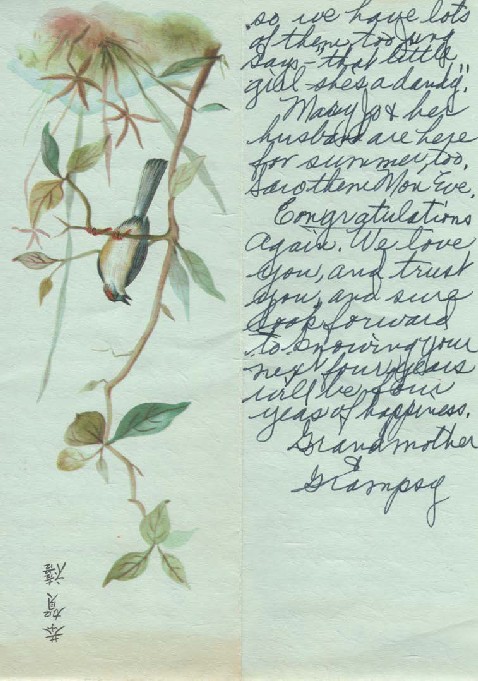 so we have lots
of them, too. Jung
says – "that little
girl she's a dandy".
Mary Jo & her
husband are here
for summer, too.
Saw them Mon Eve.
Congratulations
again. We love
you, and trust
you, and sure
look forward
to knowing your
next four years
will be four
years of happiness.
Grandmother
&
Grampsy
恭賀